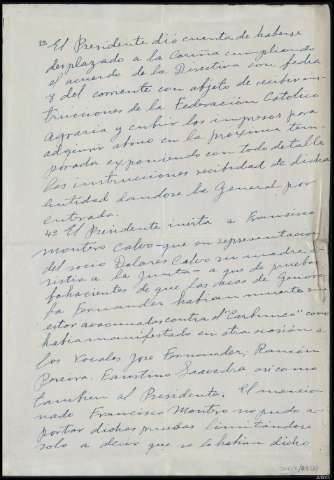 3º El Presidente dió cuenta de haberse
desplazado a la Coruña cumpliendo
el acuerdo de la Directiva con fecha
del corriente con objeto de recibir ins-
trucciones de la Federación Católico
Agraria y cubrir los impresos para
adquirir abono en la próxima tem-
porada exponiendo con todo detalle
las instrucciones recibidas de dicha
Entidad dandose la General por
enterada.
4º El Presidente invita a Francisco
Montero Calvo que en representacion
del socio Dolores Calvo su madre
sistia a la Junta a que de pruebas
fehacientes de que las vacas de Genero-
sa Fernandez habian muerto
estar vacunadas contra el "Carbunco" como
habia manifestado en otra ocasión a
los Vocales Jose Fernandez, Ramón
Pereira, Faustino Saavedra asi como
tambien al Presidente. El mencio-
nado Francisco Montero no pudo a-
portar dichas pruebas limitandose
solo a decir que se lo habian dicho